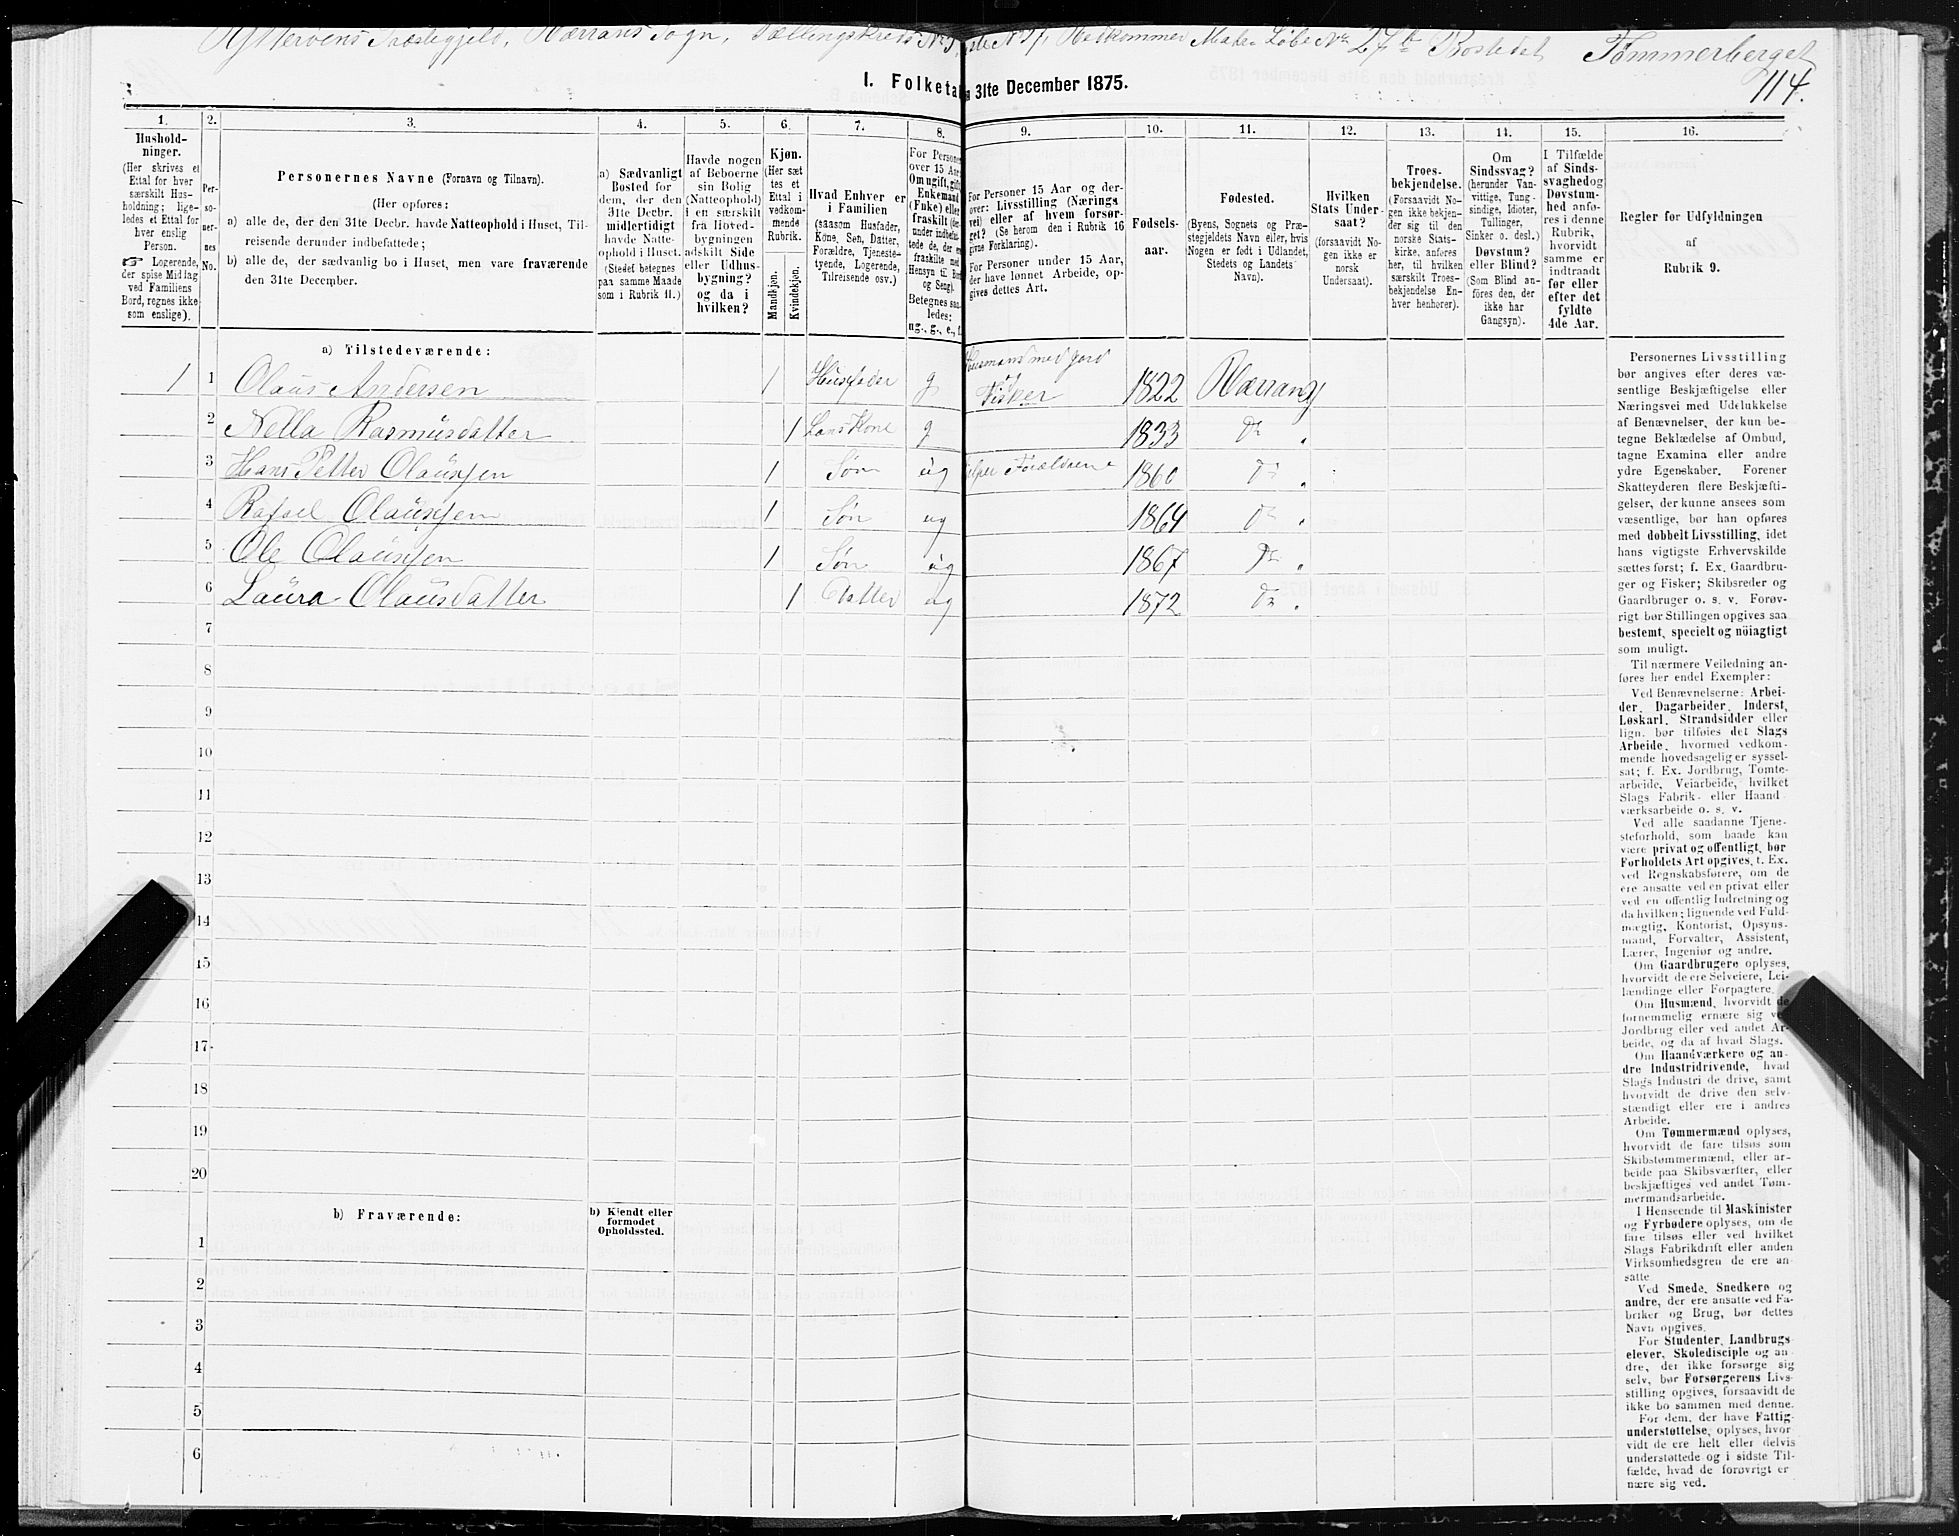 Præstegjeld, Værrans Sogn, Tællingskreds No 5, Liste No 27, Vedkommer Matr. Løbe No 27 a Bostedet Tømmerberget
114.
I. Folketal 31te December 1875.
1. 2. 3. 4. 5. 6. 7. 8. 9. 10. 11. 12. 13. 14. 15. 16.
Hushold-
ninger.
(Her skrives et
Ettal for hver
særskilt Hus-
holdning; lige-
ledes et Ettal for
hver enslig
Person.
☞ Logerende,
der spise Middag
ved Familiens
Bord, regnes ikke
som enslige).
Per-
so-
ner-
nes
No.
Personernes Navne (Fornavn og Tilnavn).
(Her opføres:
a) alle de, der den 31te Decbr. havde Natteophold i Huset, Til-
reisende derunder indbefattede;
b) alle de, der sædvanlig bo i Huset, men vare fraværende
den 31te December.
a) Sædvanligt
Bosted for
dem, der den
31te Decbr.
midlertidigt
havde Natte-
ophold i Huset.
(Stedet betegnes
paa samme Maade
som i Rubrik 11.)
Havde nogen
af Beboerne
sin Bolig
(Natteophold)
i en særskilt
fra Hoved-
bygningen
adskilt Side
eller Udhus-
bygning?
og da i
hvilken?
Kjøn.
(Her sæt
tes et
Ettal i
vedkom-
mende
Rubrik.
Mandkjøn.
Kvindekjøn.
Hvad Enhver er
i Familien
(saasom Husfader,
Kone, Søn, Datter,
Forældre, Tjeneste-
tyende, Logerende,
Tilreisende osv.)
For Personer
over 15 Aar:
Om ugift, gift,
Enkemand
(Enke) eller
fraskilt (her-
under indbefat-
tede de, der er
fraskilte med
Hensyn til Bord
og Seng).
Betegnes saa-
ledes:
ug., g., e., f.
For Personer 15 Aar og der-
over: Livsstilling (Nærings
vei) eller af hvem forsør-
get? (Se herom den i Rubrik 16
givne Forklaring).
For Personer under 15 Aar,
der have lønnet Arbeide, op-
gives dettes Art.
Fødsels-
aar.
Fødested.
(Byens, Sognets og Præ-
stegjeldets Navn eller, hvis
Nogen er født i Udlandet,
Stedets og Landets
Navn).
Hvilken
Stats Under-
saat?
(forsaavidt No-
gen ikke er
norsk
Undersaat).
Troes-
bekjendelse.
(Forsaavidt No-
gen ikke bekjen-
der sig til den
norske Stats-
kirke, anføres
her, til hvilken
særskilt Troes-
bekjendelse En-
hver henhører).
Om
Sindssvag?
(herunder Van-
vittige, Tung-
sindige, Idioter,
Tullinger,
Sinker o. desl.)
Døvstum?
eller Blind?
(Som Blind an-
føres den, der
ikke har
Gangsyn).
I Tilfælde
af Sinds-
svaghed og
Døvstum-
hed anfø-
res i denne
Rubrik,
hvorvidt
samme er
indtraadt
før eller
efter det
fyldte
4de Aar.
Regler for Udfyldningen
af
Rubrik 9.
a) Tilstedeværende:
1 1 Olaus Andersen 1 Husfader g Husmand med jord
Fisker 1822 Værrans
2 Nella Rasmusdatter 1 Hans Kone g 1833 Do "
3 Hans Petter Olaussen 1 Søn ug hjelper Forældrene 1860 Do "
4 Rafael Olaussen 1 Søn ug 1864 Do "
5 Ole Olaussen 1 Søn ug 1867 Do "
6 Laura Olausdatter 1 Datter ug 1872 Do "
7
8
9
10
11
12
13
14
15
16
17
18
19
20
b) Fraværende:
b) Kjendt eller
formodet
Opholdssted.
1
2
3
4
5
6
Personernes Livsstilling
bør angives efter deres væ-
sentlige Beskjæftigelse eller
Næringsvei med Udelukkelse
af Benævnelser, der kun be-
tegne Beklædelse af Ombud,
tagne Examina eller andre
ydre Egenskaber. Forener
Skatteyderen flere Beskjæfti-
gelser, der kunne ansees som
væsentlige, bør han opføres
med dobbelt Livsstilling, idet
hans vigtigste Erhvervskilde
sættes først; f. Ex. Gaardbru-
ger og Fisker; Skibsreder og
Gaardbruger o. s. v. Forøv-
rigt bør Stillingen opgives saa
bestemt, specielt og nöiagtigt
som muligt.
Til nærmere Veiledning an-
føres her endel Exempler:
Ved Benævnelserne: Arbei-
der, Dagarbeider, Inderst,
Løskarl, Strandsidder eller
lign. bør tilføies det Slags
Arbeide, hvormed vedkom-
mende hovedsagelig er syssel-
sat; f. Ex. Jordbrug, Tomte-
arbeide, Veiarbeide, hvilket
Slags Fabrik- eller Haand
værksarbeide o. s. v.
Ved alle saadanne Tjene-
steforhold, som baade kan
være privat og offentligt, bør
Forholdets Art opgives, t. Ex.
ved Regnskabsførere, om de
ere ansatte ved en privat eller
ved en offentlig Indretning og
da hvilken; lignende ved Fuld-
mægtig, Kontorist, Opsyns-
mand, Forvalter, Assistent,
Lærer, Ingeniør og andre.
Om Gaardbrugere oplyses,
hvorvidt de ere Selveiere, Lei-
lændinge eller Forpagtere.
Om Husmænd, hvorvidt de
fornemmelig ernære sig ved
Jordbrug eller ved andet Ar-
beide, og da af hvad Slags.
Om Haandværkere og an-
dre Industridrivende, hvad
Slags Industri de drive, samt
hvorvidt de drive den selv-
stændigt eller ere i andres
Arbeide.
Om Tømmermænd oplyses,
hvorvidt de fare tilsøs som
Skibstømmermænd, eller ar-
beide paa Skibsværfter, eller
beskjæftiges ved andet Tøm-
mermandsarbeide.
I Henseende til Maskinister
og Fyrbødere oplyses, om de
fare tilsøs eller ved hvilket
Slags Fabrikdrift eller anden
Virksomhedsgren de ere an-
satte
Ved Smede, Snedkere og
andre, der ere ansatte ved Fa-
briker og Brug, bør dettes
Navn opgives.
For Studenter, Landbrugs
elever, Skoledisciple og an-
dre, der ikke forsørge sig
selv, bør Forsørgerens Livs-
stilling opgives, forsaavidt de
ikke bo sammen med denne.
For dem, der have Fattig-
understøttelse, oplyses, hvor-
vidt de ere helt eller delvis
understøttede og i sidste Til-
fælde, hvad de forøvrigt er
nære sig ved.